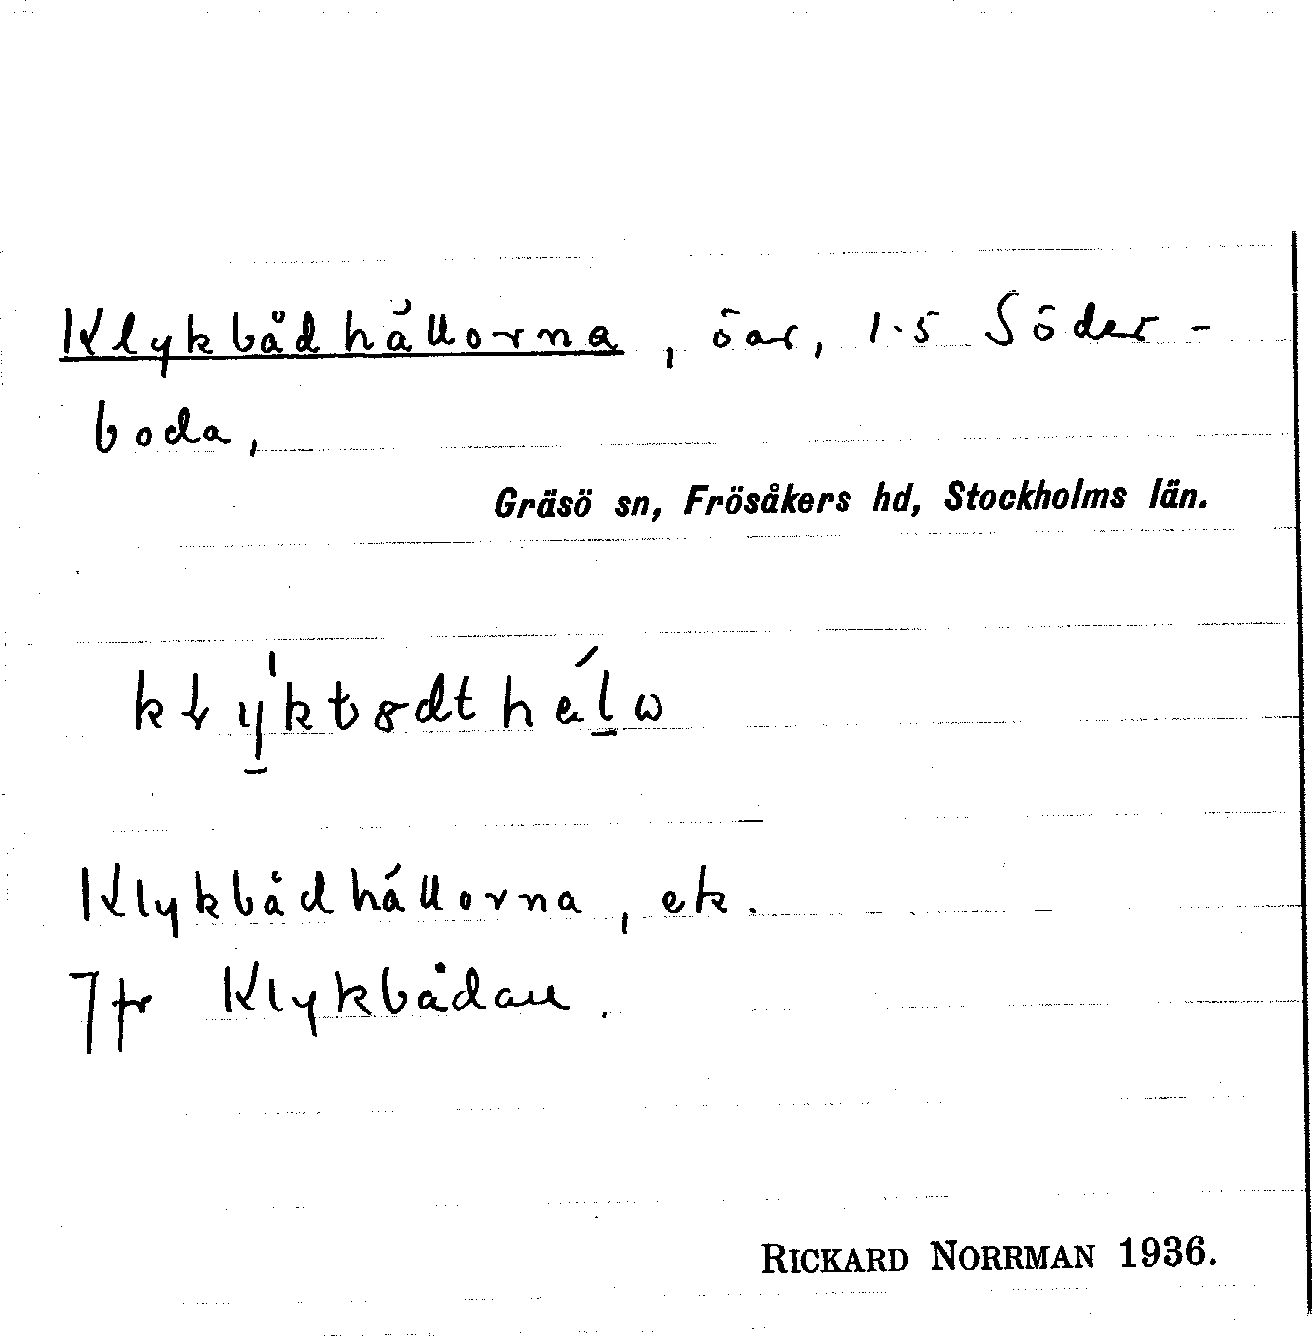 Klykbådhällorna, öar, 1·5 Söder-
boda,
Gräsö sn, Frösåkers hd, Stockholms län.
Klykbådhällorna, ek.
Jfr Klykbådan.
RICKARD NORRMAN 1936.